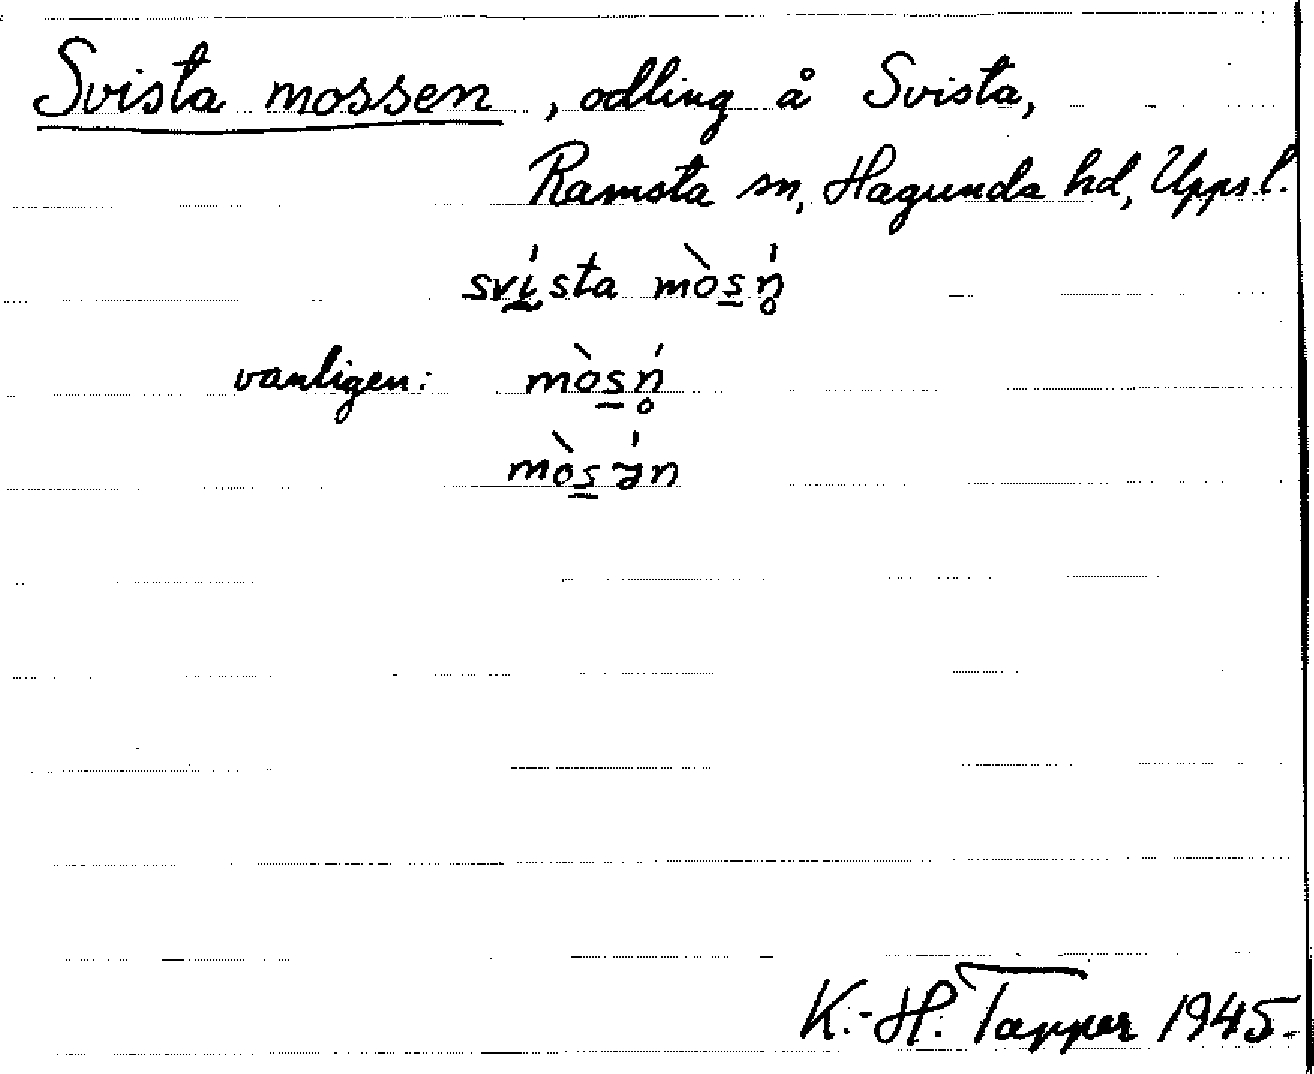 Svista mossen, odling å Svista,
Ramsta sn, Hagunda hd, Uppl.
sví̲sta mòs̲ń̥
vanligen: mòs̲ń̥
mòs̲ə́n
K.-H. Tapper 1945.